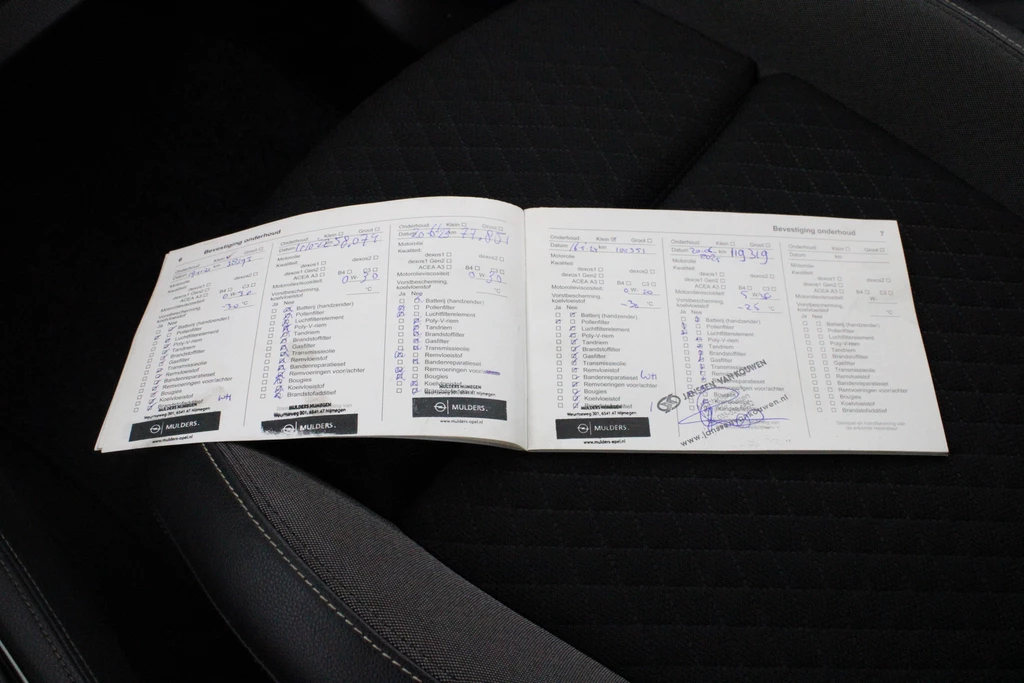 6 Bevestiging onderhoud
Onderhoud: Klein Groot
Datum km
Motorolie
Kwaliteit:
dexos1 dexos2
dexos1 Gen2
ACEA A3 B4 C3
Motorolieviscositeit 0 W 30
Vorstbescherming
koelvloeistof -30 °C
Ja Nee
Batterij (handzender)
Pollenfilter
Luchtfilterelement
Poly-V-riem
Tandriem
Brandstoffilter
Gasfilter
Transmissieolie
Remvloeistof
Bandenreparatieset
Remvoeringen voor/achter
Bougies
Koelvloeistof
WH
MULDERS.
www.mulders-opel.nl
Onderhoud: Klein Groot
Datum 58,079
Motorolie
Kwaliteit:
dexos1 dexos2
dexos1 Gen2
ACEA A3 B4 C3
Motorolieviscositeit 0 W 30
Vorstbescherming
koelvloeistof °C
Ja Nee
Batterij (handzender)
Pollenfilter
Luchtfilterelement
Poly-V-riem
Tandriem
Brandstoffilter
Gasfilter
Transmissieolie
Remvloeistof
Bandenreparatieset
Remvoeringen voor/achter
Bougies
Koelvloeistof
Brandstofadditief
MULDERS NIJMEGEN
Weurtseweg 301, 6541 AT Nijmegen
MULDERS.
Onderhoud: Klein Groot
Datum km 77,801
Motorolie
Kwaliteit:
dexos1 dexos2
dexos1 Gen2
ACEA A3 B4 C3
Motorolieviscositeit 0 W 30
Vorstbescherming
koelvloeistof °C
Ja Nee
Batterij (handzender)
Pollenfilter
Luchtfilterelement
Poly-V-riem
Tandriem
Brandstoffilter
Gasfilter
Transmissieolie
Remvloeistof
Bandenreparatieset
Remvoeringen voor/achter
Bougies
Koelvloeistof
MULDERS NIJMEGEN
Weurtseweg 301, 6541 AT Nijmegen
MULDERS.
www.mulders-opel.nl
Bevestiging onderhoud 7
Onderhoud: Klein Groot
Datum km 100351
Motorolie
Kwaliteit:
dexos1 dexos2
dexos1 Gen2
ACEA A3 B4 C3
Motorolieviscositeit 0 W
Vorstbescherming
koelvloeistof -30 °C
Ja Nee
Batterij (handzender)
Pollenfilter
Luchtfilterelement
Poly-V-riem
Tandriem
Brandstoffilter
Gasfilter
Transmissieolie
Remvloeistof
Bandenreparatieset
Remvoeringen voor/achter
Bougies
Koelvloeistof
WH
MULDERS NIJMEGEN
Weurtseweg 301, 6541 AT Nijmegen
MULDERS.
www.mulders-opel.nl
Onderhoud: Klein Groot
Datum 20-06 km 119319
Motorolie
Kwaliteit:
dexos1 dexos2
dexos1 Gen2
ACEA A3 B4 C3
Motorolieviscositeit 5 W 30
Vorstbescherming
koelvloeistof -25 °C
Ja Nee
Batterij (handzender)
Pollenfilter
Luchtfilterelement
Poly-V-riem
Tandriem
Brandstoffilter
Gasfilter
Transmissieolie
Remvloeistof
Bandenreparatieset
Remvoeringen voor/achter
Bougies
JANSSEN VAN KOUWEN
Onderhoud: Klein Groot
Datum km
Motorolie
Kwaliteit:
dexos1 dexos2
dexos1 Gen2
ACEA A3 B4 C3
Motorolieviscositeit W-
Vorstbescherming
koelvloeistof °C
Ja Nee
Batterij (handzender)
Pollenfilter
Luchtfilterelement
Poly-V-riem
Tandriem
Brandstoffilter
Gasfilter
Transmissieolie
Remvloeistof
Bandenreparatieset
Remvoeringen voor/achter
Bougies
Koelvloeistof
Brandstofadditief